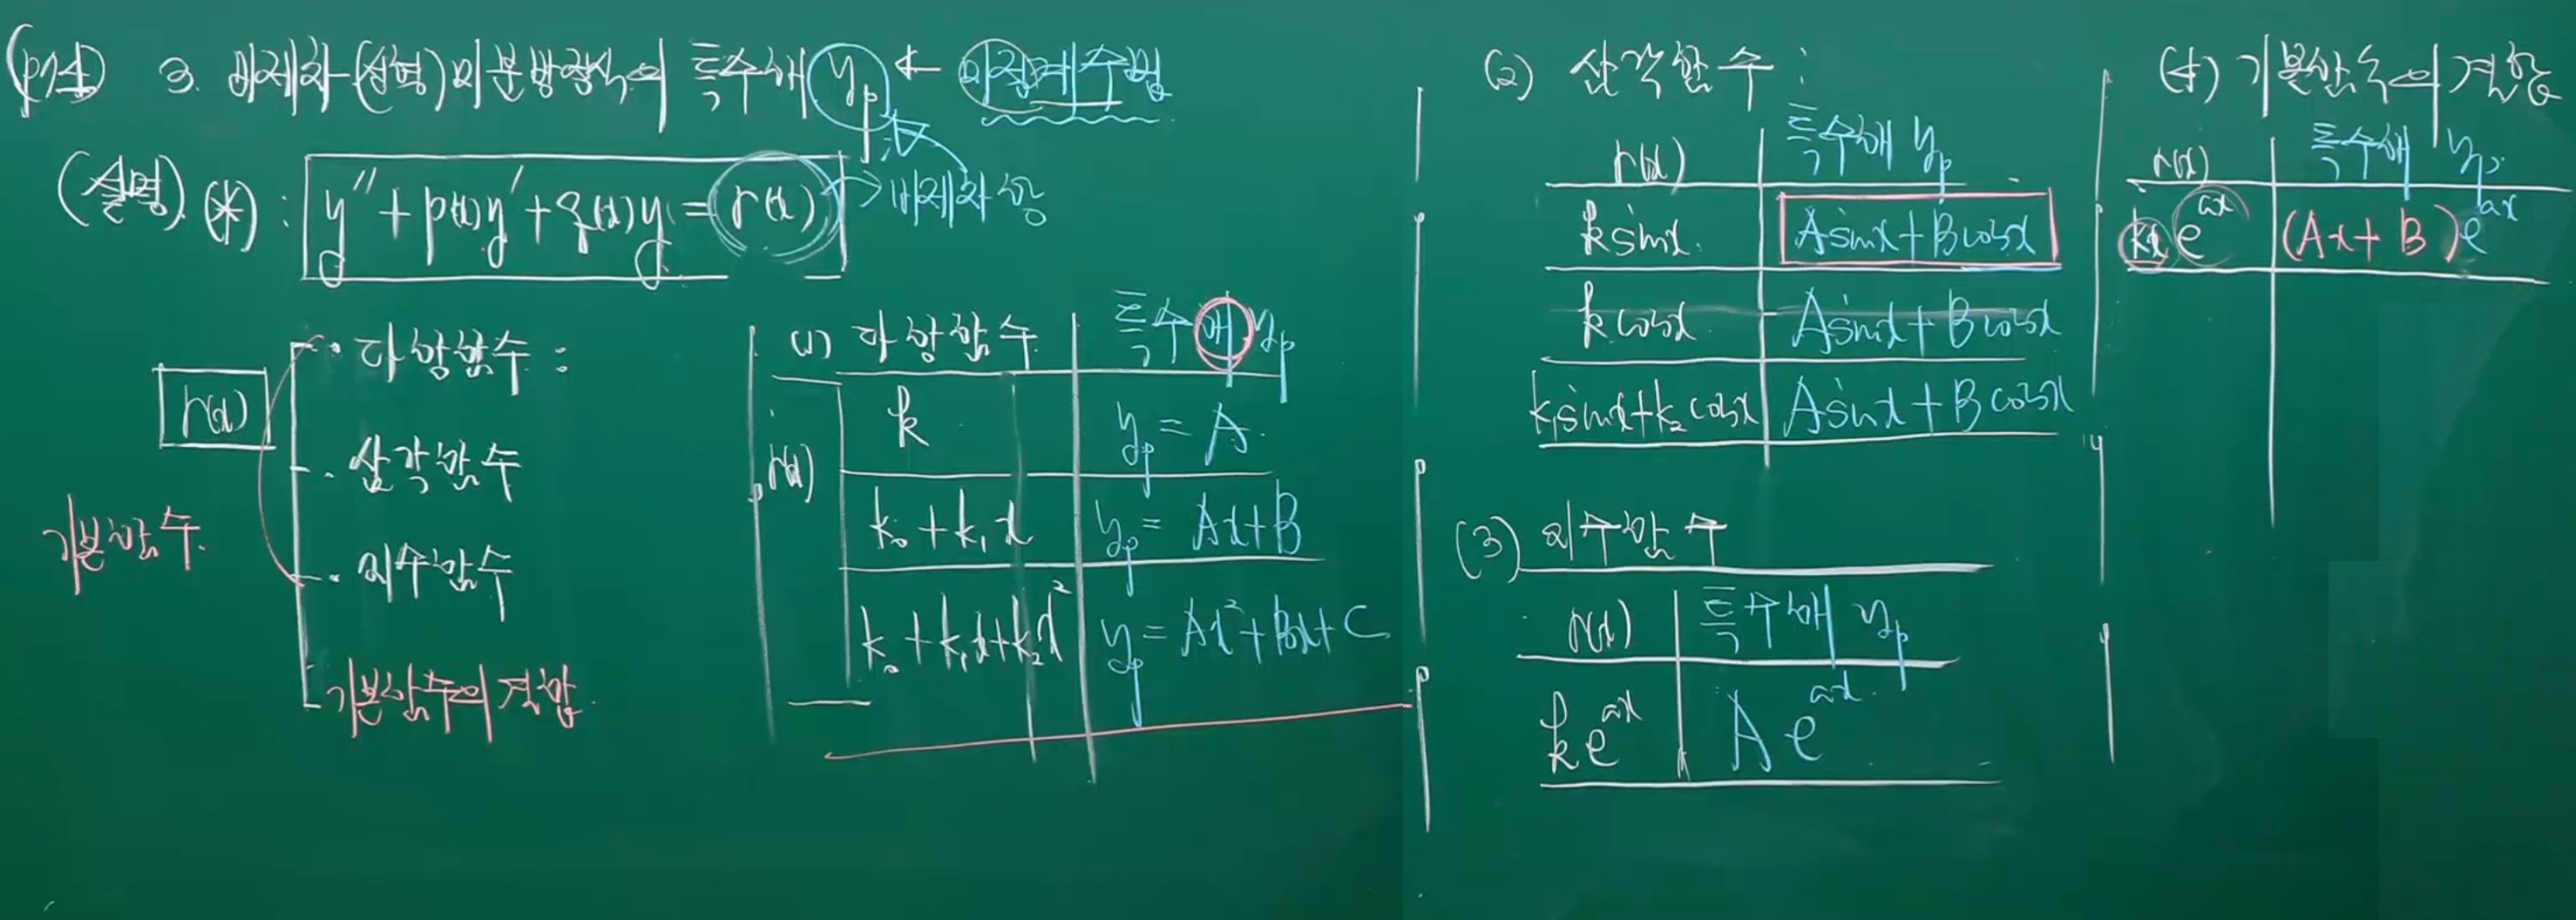 (p74) 3. 비제차 (선형) 미분방정식의 특수해 y_p ← 미정계수법
(설명) (*) : y'' + p(x)y' + q(x)y = r(x) → 비제차항
r(x)
· 다항함수 :
· 삼각함수
· 지수함수
기본함수의 결합.
기본함수.
(1) 다항함수 특수해 y_p
r(x)
k y_p = A.
k₀ + k₁x y_p = Ax + B
k₀ + k₁x + k₂x² y_p = Ax² + Bx + C
(2) 삼각함수 :
r(x) 특수해 y_p
k sinx. Asinx + Bcosx
k cosx. Asinx + Bcosx
k₁sinx + k₂cosx Asinx + Bcosx
(3) 지수함수
r(x) 특수해 y_p
ke^{ax} Ae^{ax}.
(4) 기본함수의 결합
r(x) 특수해 y_p.
kxe^{ax} (Ax + B)e^{ax}